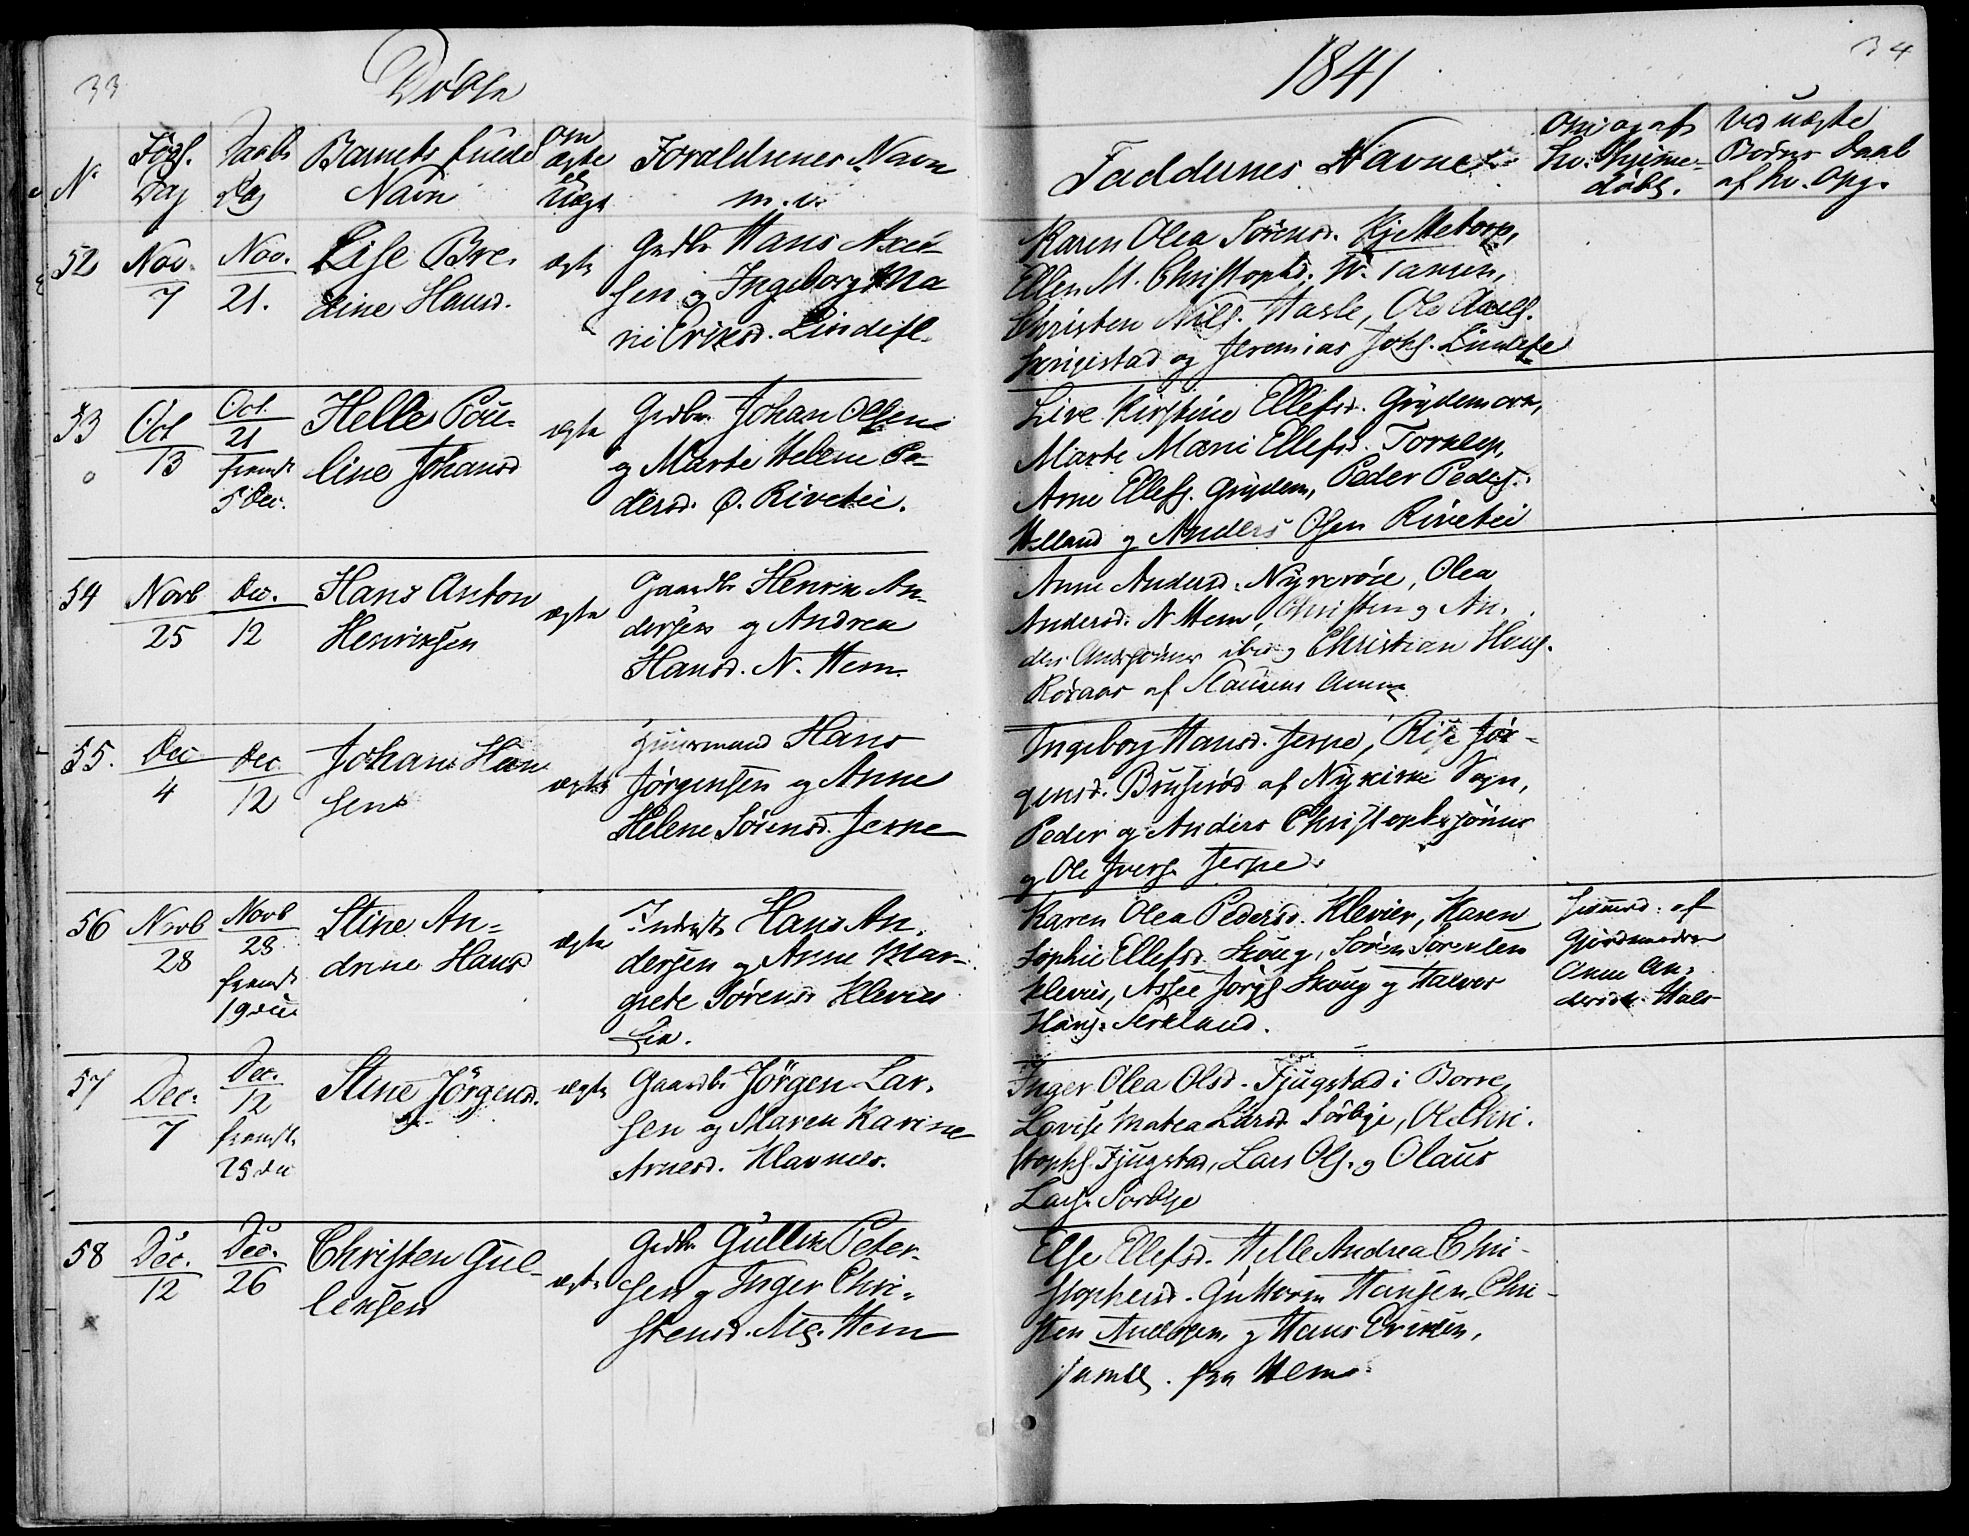 33
Døbte
1841
34
No
Føds.
Dag
Daabs
Dag
Barnets fulde
Navn
Om
ægte
el
Uægt
Forældrenes Navn
m. v.
Faddernes Navne
Om og af
hv. Hjemme-
døbt.
Ved uægte
Børns Daab
af hv. Opg.
52
Nov.
7
Nov.
21.
Lise Bre-
dine Hansd.
ægte
Grdbr Hans Axel-
sen og Ingeborg Ma
rie Eriksd. Lindefl.
Karen Olea Sørensd.
Ellen M. Christophd.
Christen Nils. Hasle, Ole Axels.
og Jeremias Johs.
53
Oct
13
Oct.
21
fremst
5 Dec.
Helle Pou-
line Johansd
ægte
Grdbr. Johan Olsen
og Marte Helene Pe-
dersd. Ø. Rivetei.
Live Kirstine Ellefsd.
Marte Marie Ellefsd. Torklep,
Arne Ellefs. Grydem, Peder Peders.
Helland og Anders Olsen Rivetei
54
Novb
25
Dec.
12
Hans Anton
Henriksen
ægte
Gaardbr Henrik An-
dersen og Andrea
Hansd. N. Hem.
Anne Andersd. Nykerøie, Olea
Andersd. N Hem, Christen og An-
ders Anderssønner ibid og Christian Hans.
Røraas af Slauens Annex
55.
Dec
4
Dec
12
Johan Han
sen
ægte
Huusmand Hans
Jørgensen og Anne
Helene Sørensd. Jerpe
Ingeborg Hansd. Jerpe,
gensd. Bruserød af Nykirke Sogn,
Peder og Anders Christophersønner
og Ole Ivers. Jerpe.
56
Novb
28
Novb
28
fremst
19 Dec
Stine An-
drine Hansd
ægte
Inderst Hans An-
dersen og Anne Mar-
grete Sørensd Klevier
Karen Olea Pedersd. Klevier, Karen
Sophie Ellefsd. Skoug, Søren Sørensen
Klevier, Jørgs Skoug og Halvor
Hans.
hjemmd. af
Gjordmoder
Anne An-
57
Dec.
7
Dec.
12
fremst.
25 Dec
Stine Jørgensd.
ægte
Gaardbr Jørgen Lar-
sen og Maren Karine
Arnesd. Klavnes.
Inger Olea Olsd. Fjugstad i Borre,
Lovise Matea Larsd. Sørbye, Ole Chri-
stophs. Fjugstad, Lars Ols. og Olaus
Lars. Sørbye
58
Dec.
12
Dec.
26
Christen Gul-
leksen
ægte
Grdbr Gullik Peter-
sen og Inger Chri-
stensd. Hem
Else Ellefsd. Helle Andrea Chri-
stophersd. Guttorm Hansen, Chri-
sten Andersen, og Hans Eriksen,
samtl. fra Hem.